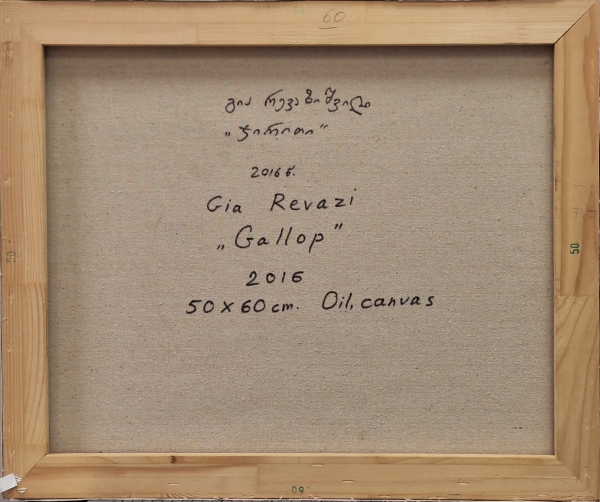 60
გია რევაზიშვილი
„ჯირითი“
2016 წ.
Gia Revazi
„Gallop”
2016
50 X 60 cm. Oil, canvas
50
50
60